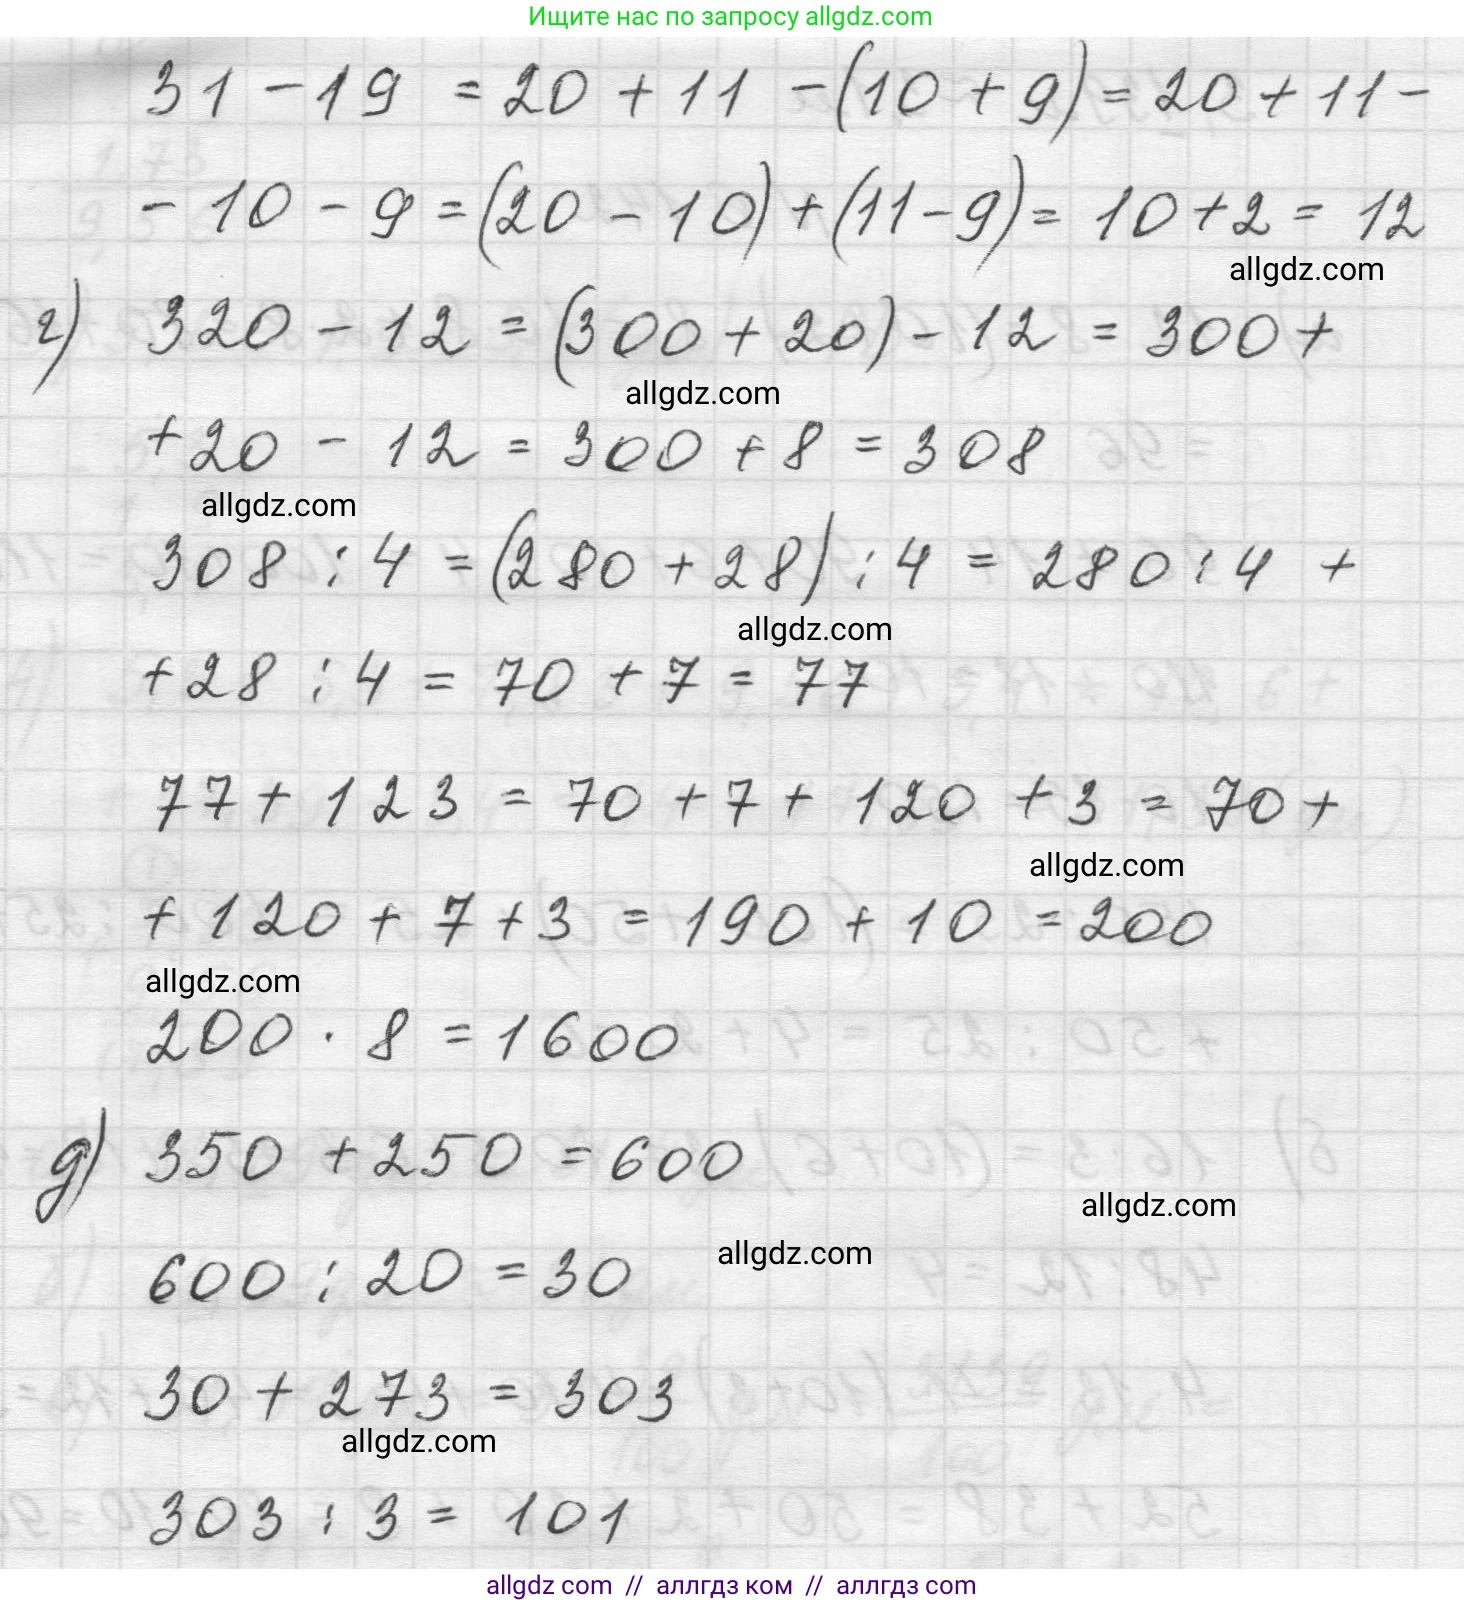 Ищите нас по запросу allgdz.com
31 - 19 = 20 + 11 - (10 + 9) = 20 + 11 -
- 10 - 9 = (20 - 10) + (11 - 9) = 10 + 2 = 12
allgdz.com
г) 320 - 12 = (300 + 20) - 12 = 300 +
allgdz.com
+ 20 - 12 = 300 + 8 = 308
allgdz.com
308 : 4 = (280 + 28) : 4 = 280 : 4 +
allgdz.com
+ 28 : 4 = 70 + 7 = 77
77 + 123 = 70 + 7 + 120 + 3 = 70 +
allgdz.com
+ 120 + 7 + 3 = 190 + 10 = 200
allgdz.com
200 · 8 = 1600
д) 350 + 250 = 600
allgdz.com
allgdz.com
600 : 20 = 30
30 + 273 = 303
allgdz.com
303 : 3 = 101
allgdz com // аллгдз ком // аллгдз com